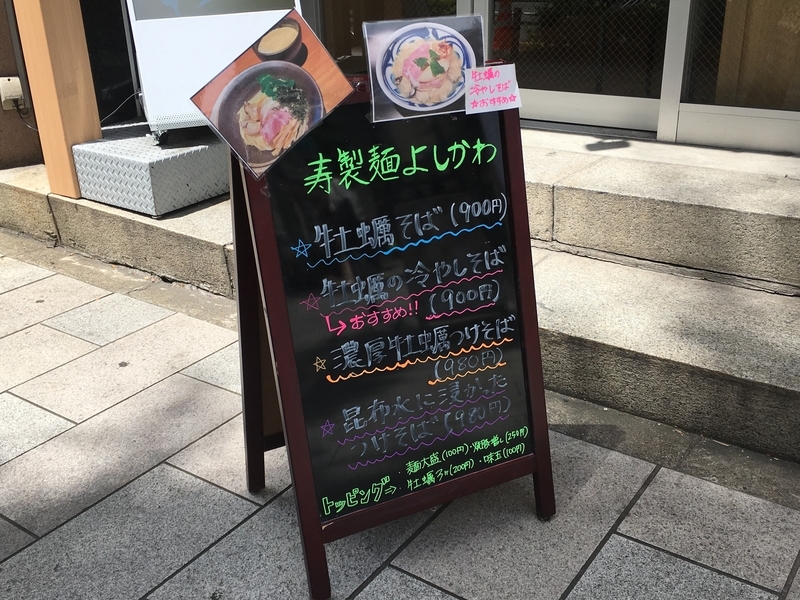 牡蠣の
冷やしそば
☆おすすめ☆
寿製麺よしかわ
☆牡蠣そば(900円)
☆牡蠣の冷やしそば
↳おすすめ!! (900円)
☆濃厚牡蠣つけそば
(980円)
☆昆布水に浸かった
つけそば (980円)
トッピング⇒ 麺大盛(100円)・増し(250円)
牡蠣3ヶ(200円)・味玉(100円)